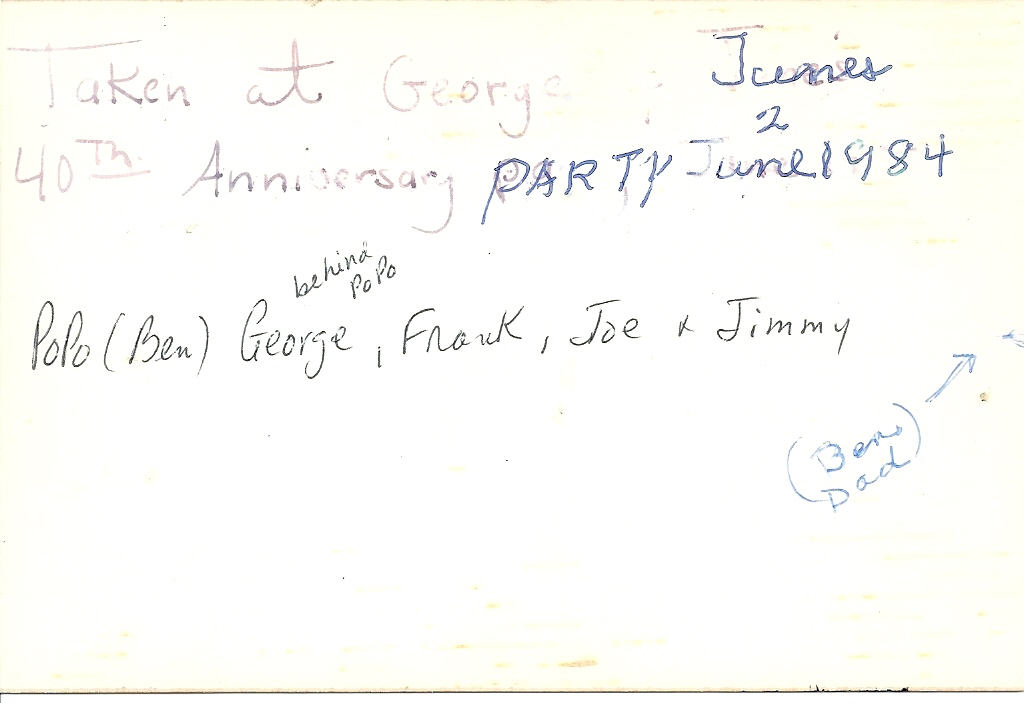 Taken at George & Junes
40Th Anniversary PARTY June 2 1984
behind
PoPo
PoPo (Ben) George, Frank, Joe & Jimmy
(Ben
Dad)